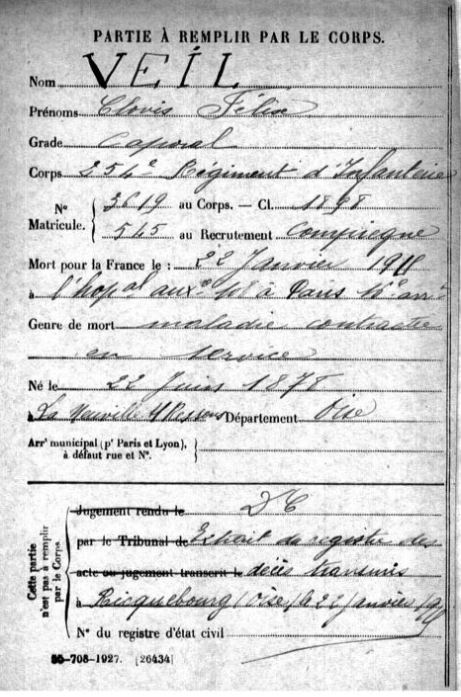 PARTIE À REMPLIR PAR LE CORPS.
Nom VEÏL
Prénoms Clovis Félix
Grade caporal
Corps 254e Régiment d'Infanterie
No Matricule. 3619 au Corps. — Cl. 1898
545 au Recrutement Compiègne
Mort pour la France le : 22 Janvier 1915
à l'hopal auxe à Paris arrt
Genre de mort maladie contractée
en service
Né le 22 Juin 1878
à La Neuville s/Ressons Département Oise
Arrt municipal (pr Paris et Lyon),
à défaut rue et No.
Cette partie
n'est pas à remplir
par le Corps.
Jugement rendu le DC
par le Tribunal de Extrait du registre des
acte ou jugement transcrit le décès transmis
à Ricquebourg (Oise) le 22 Janvier
No du registre d'état civil
708-1927. [26434]